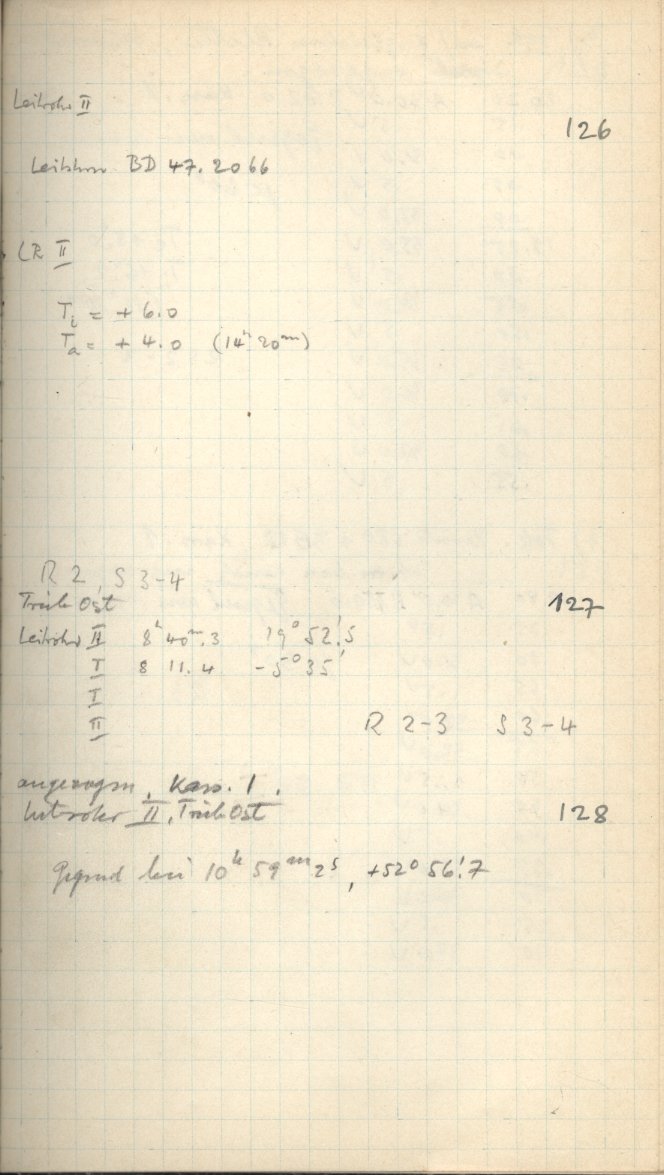 Leitrohr II
126
Leitstern BD 47.2066
LR II
T_i = + 6.0
T_a = + 4.0 (14ʰ 20ᵐ)
R 2, S 3-4
Trieb Ost 127
Leitrohr II 8ʰ 40ᵐ.3 19° 52!5
I 8 11.4 -5° 35'
I
II R 2-3 S 3-4
angezogen. Kass. 1.
Leitrohr II, Trieb Ost 128
Gegend bei 10ʰ 59ᵐ 2ˢ, +52° 56!7